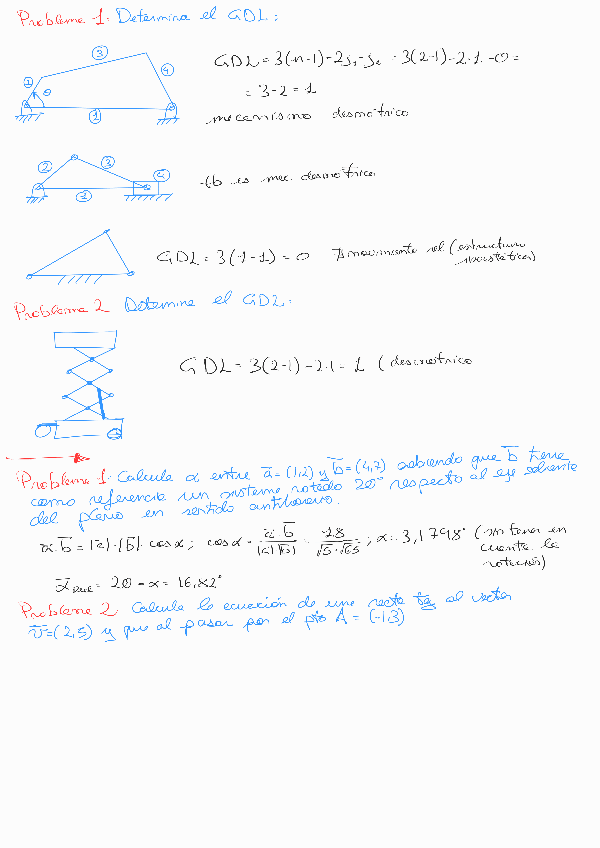 Problema 1. Determina el GDL:
③
② ④
θ
①
GDL = 3(n-1)-2j₁-j₂ = 3(2-1)-2·1-0 =
= 3-2 = 1
mecanismo desmotrico
② ③ ④
①
es mec. desmotrico
GDL = 3(1-1) = 0 movimiento rel (estructura isostática)
Problema 2 Determina el GDL:
GDL = 3(2-1)-2·1 = 1 (desmotrico
Problema 1. Calcula α entre a̅ = (1,2) y b̅ = (4,7) sabiendo que b̅ tiene
como referencia un sistema rotado 20° respecto al eje saliente
del plano en sentido antihorario.
a̅·b̅ = |a̅|·|b̅| cos α; cos α = a̅ b̅ / |a||b| = 18 / √5·√65; α = 3,1798° (sin tener en
cuenta la
rotación)
= 20 - α = 16,82°
Problema 2 Calcula la ecuación de una recta tg al vector
v̅ = (2,5) y que al pasar por el pto A = (-1,3)